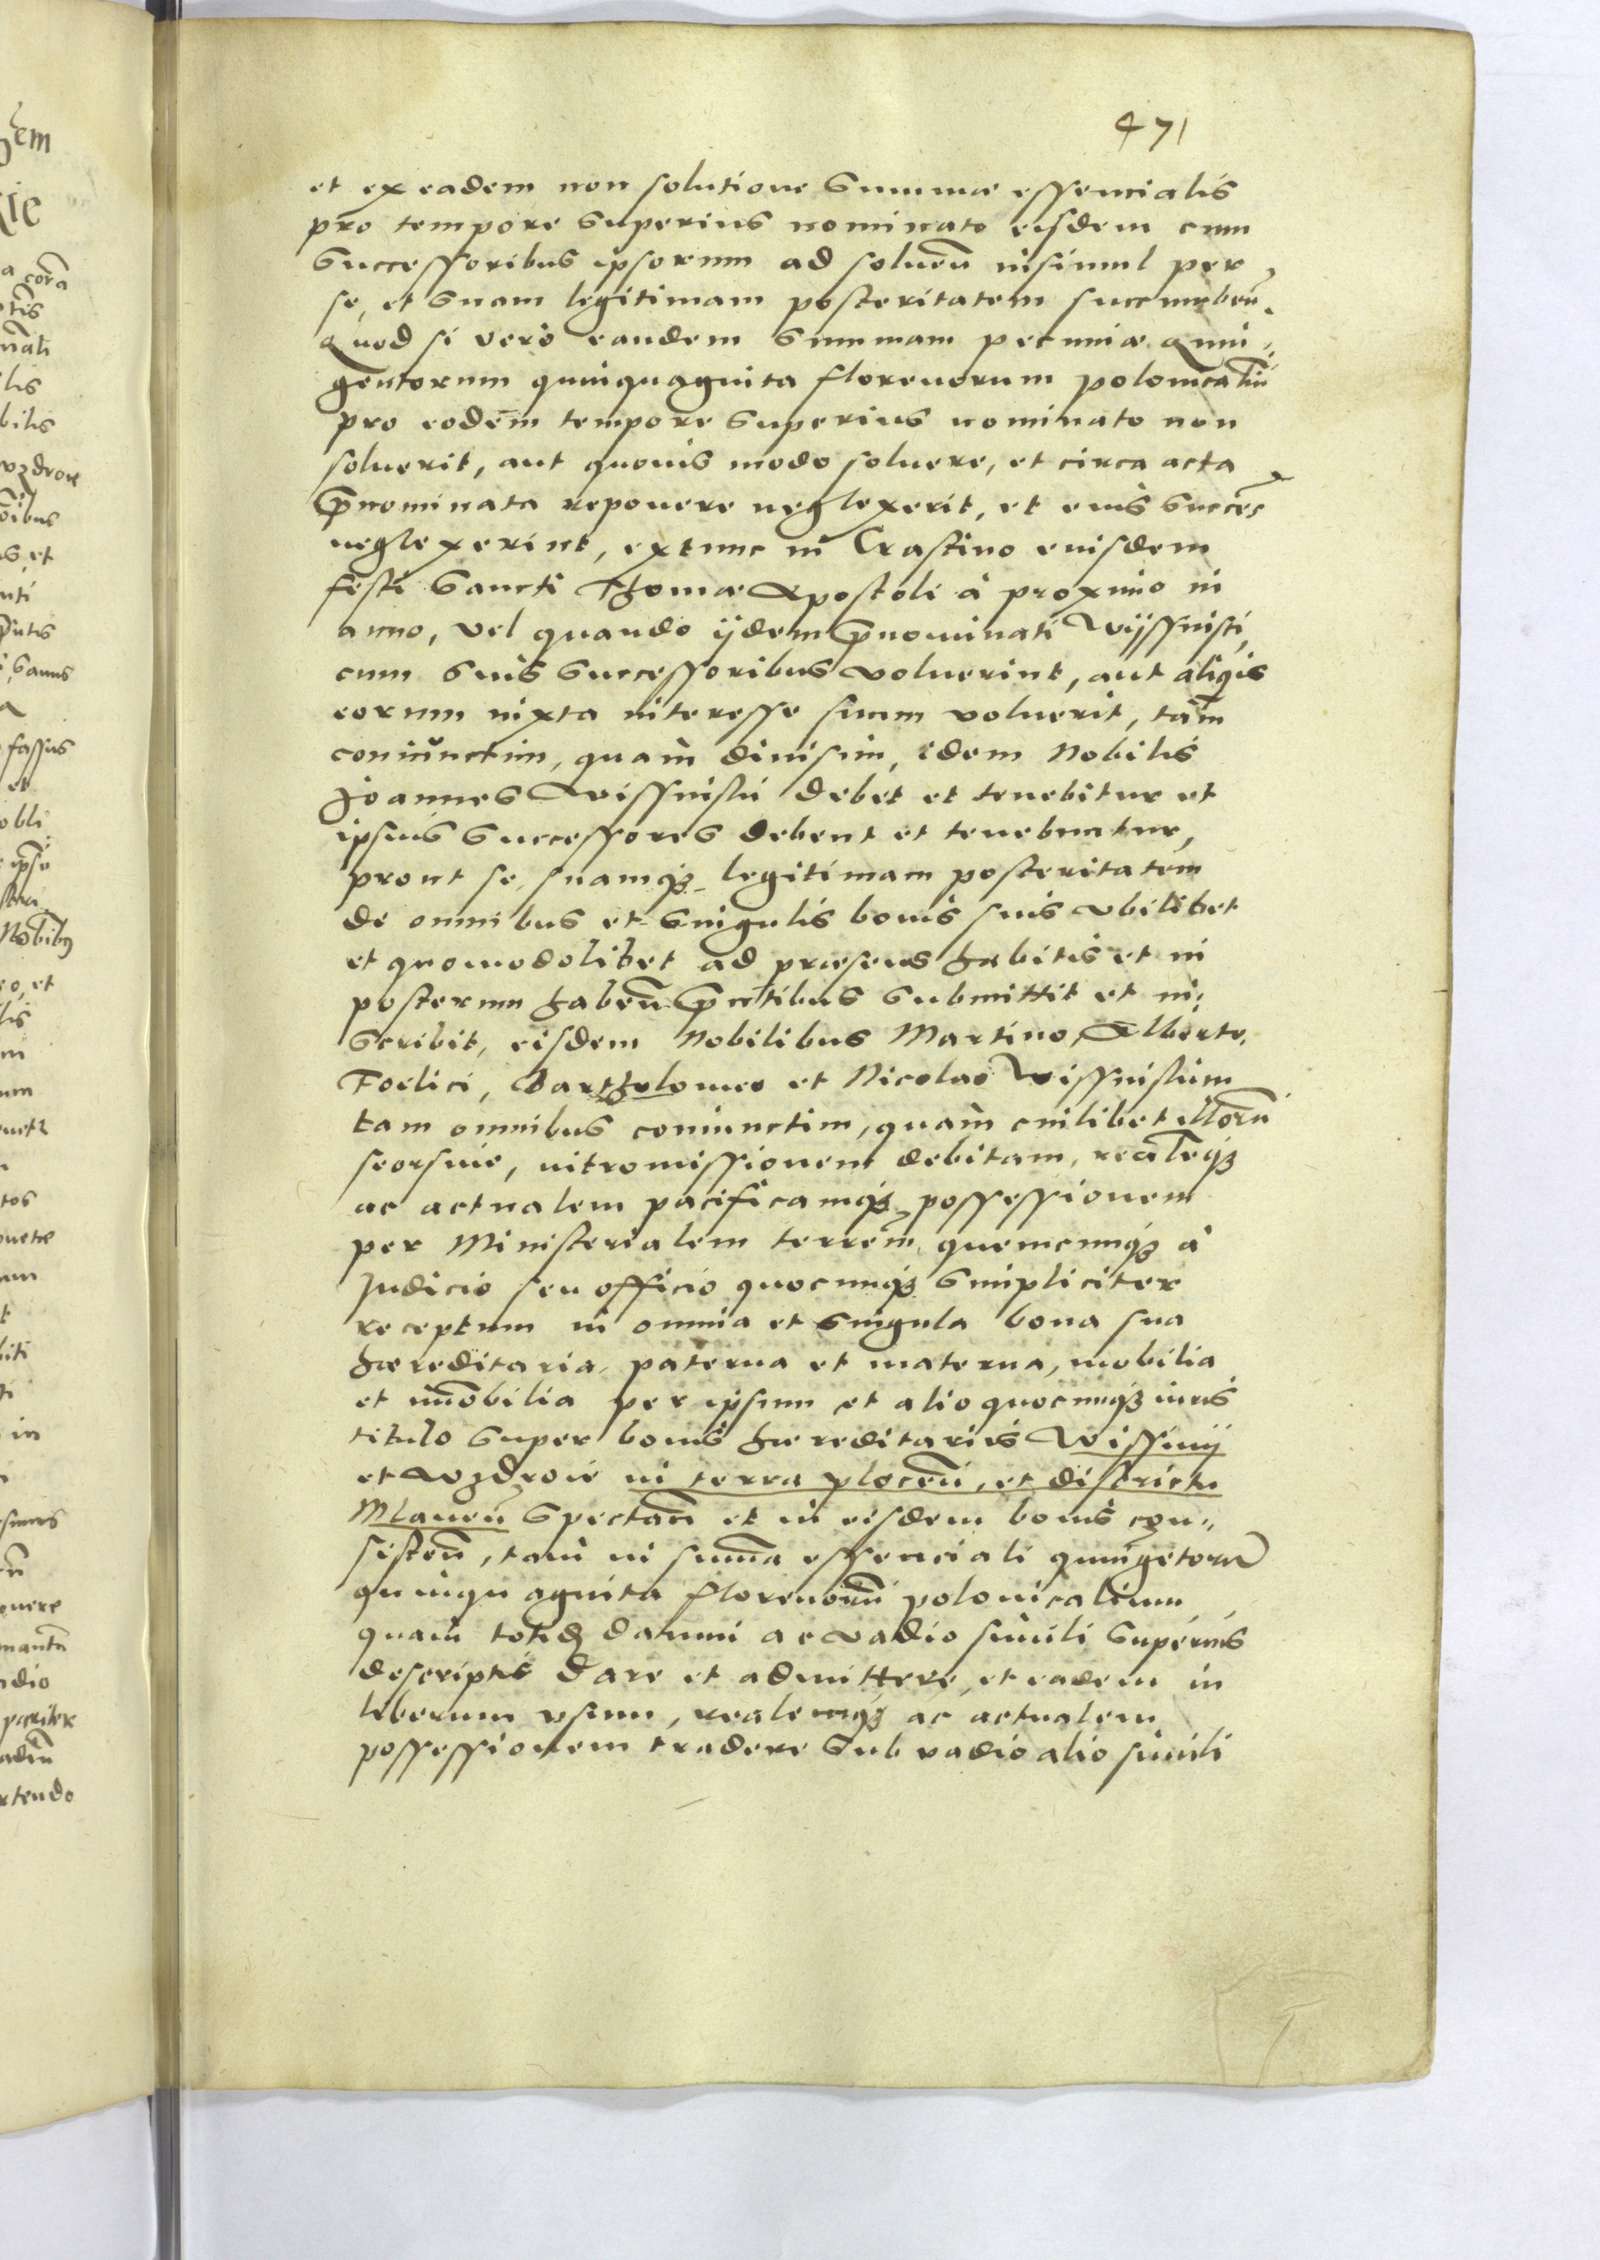 471
et ex eadem non solutione Summæ essencialis
pro tempore superius nominato eisdem cum
Successoribus ipsorum ad soluen̄ insimul per
se, et suam legitimam posteritatem succumben̄.
Quod si vero eandem Summam pecuniæ quin„
gentorum quinquaginta florenorum polonicaliū
pro eodem tempore superius nominato non
soluerit, aut quouis modo soluere, et circa acta
p̄nominata reponere neglexerit, et eius succes̄
neglexerint, extunc in Crastino eiusdem
festi Sancti Thomæ Apostoli à proximo in
anno, vel quando ijdem p̄nominati Wijssnisci,
cum suis Successoribus voluerint, aut aliquis
eorum iuxta interesse suum voluerit, tam̄
coniunctim, quàm diuisim, idem Nobilis
Joannes Wissniski debet et tenebitur et
ipsius successores debent et tenebuntur,
prout se, suamq₃ legitimam posteritatem
de omnibus et singulis bonis suis vbilibet
et quomodolibet ad præsens habitis et in
posterum haben̄ p̄ntibus submittit et in„
scribit, eisdem Nobilibus Martino, Alberto,
Foelici, Bartholomeo et Nicolao Wissniskim
tam omnibus coniunctim, quàm cuilibet illorū
seorsiue, intromissionem debitam, realēq₃
ac actualem pacificamq₃ possessionem
per Ministerialem terrēm, quemcunq₃ à
Judicio seu officio quocunq₃ simpliciter
receptum in omnia et singula bona sua
hæreditaria, paterna et materna, mobilia
et im̄obilia per ipsum et alio quocunq₃ iuris
titulo super bonis hæreditariis Wissinij
et Wzdroie in terra plocen̄, et districtu
Mlauen̄ Spectan̄ et in eisdem bonis con„
sisten̄, tam in sum̄a essenciali quingētorū
quinquaginta florenorū polonicalium
quàm totiđ damni ac vadio simili superius
descriptis dare et admittere, et eadem in
liberum vsum, realemq₃ ac actualem
possessionem tradere sub vadio alio simili